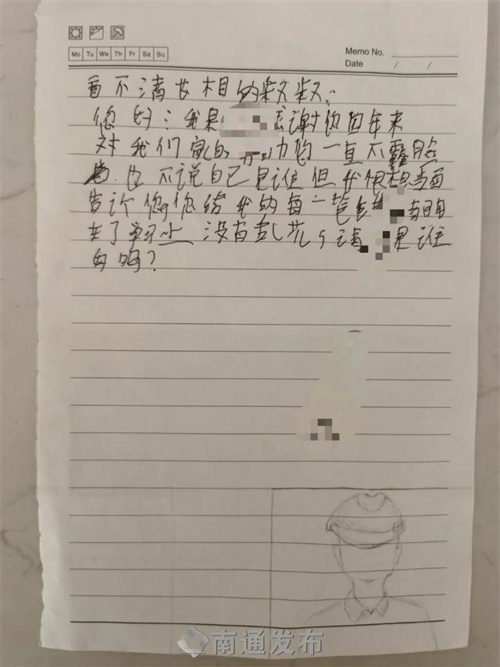 Memo No.
Mo Tu We Th Fr Sa Su
Date / /
看不清长相的叔叔:
您好:我是 感谢您四年来
对我们家的 助您一直不露脸
也不说自己是谁但我很想当面
告诉您您给我的每一笔钱 都用
在了学习上 没有乱花 请 是谁
的吗?
南通发布